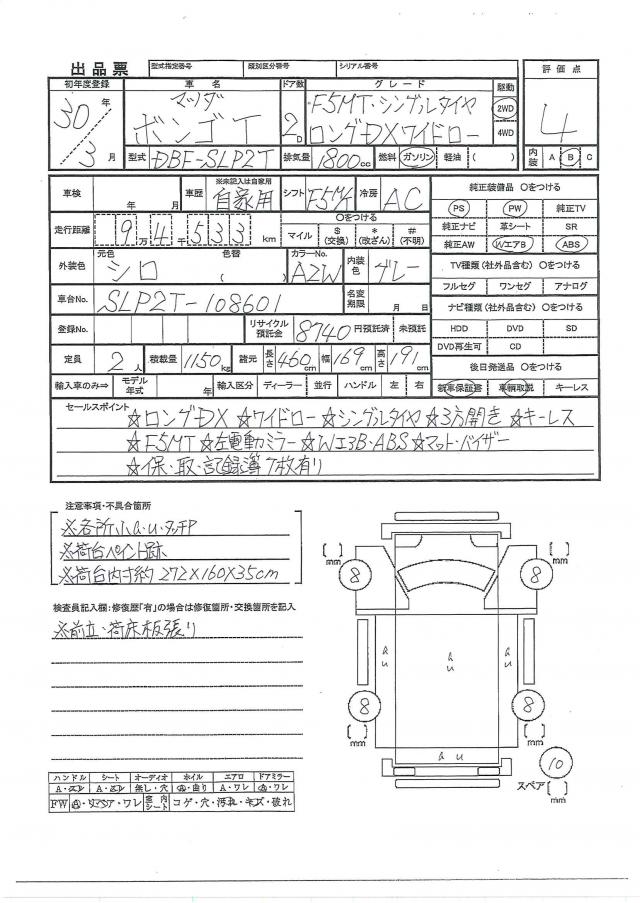 出品票 型式指定番号 類別区分番号 シリアル番号
初年度登録 車名 ドア数 グレード 駆動 評価点
30年 マツダ F5MT・シングルタイヤ 2WD
3月 ボンゴT 2D ロングDXワイドロー 4WD 4
型式 DBF-SLP2T 排気量 1800cc 燃料 ガソリン・軽油・( ) 内装 A B C
車検 年 月 車歴 ※未記入は自家用 自家用 シフト F5M/T 冷房 AC 純正装備品 〇をつける
〇をつける PS PW 純正TV
走行距離 9万4千533km マイル $(交換) *(改ざん) #(不明) 純正ナビ 革シート SR
純正AW WエアB ABS
外装色 元色 シロ 色替 ( ) カラーNo. A2W 内装色 グレー TV種類(社外品含む) 〇をつける
フルセグ ワンセグ アナログ
車台No. SLP2T-108601 名変期限 月 日 ナビ種類(社外品含む) 〇をつける
登録No. リサイクル預託金 8740円預託済 未預託 HDD DVD SD
DVD再生可 CD
定員 2人 積載量 1150kg 諸元 長さ460cm 幅169cm 高さ191cm 後日発送品 〇をつける
輸入車のみ⇒ モデル年式 年 輸入区分 ディーラー 並行 ハンドル 左 右 新車保証書 車輌取説 キーレス
セールスポイント
☆ロングDX ☆ワイドロー ☆シングルタイヤ ☆3方開き ☆キーレス
☆F5MT ☆左電動ミラー ☆WエアB・ABS ☆マット・バイザー
☆保・取・記録簿7枚有り
注意事項・不具合箇所
※各所小a.u.タッチP
※荷台ペイント跡
※荷台内寸約272×160×35cm
検査員記入欄:修復歴「有」の場合は修復箇所・交換箇所を記入
※前立、荷床板張り
[ ]mm 8 8 [ ]mm
au au au
8 8
[ ]mm [ ]mm
au
10
スペア[ ]mm
ハンドル シート オーディオ ホイル エアロ ドアミラー
A・スレ A・スレ 無し・穴 A・曲り A・ワレ A・ワレ
FW A・リペア・ワレ 室内シート コゲ・穴・汚れ・キズ・破れ